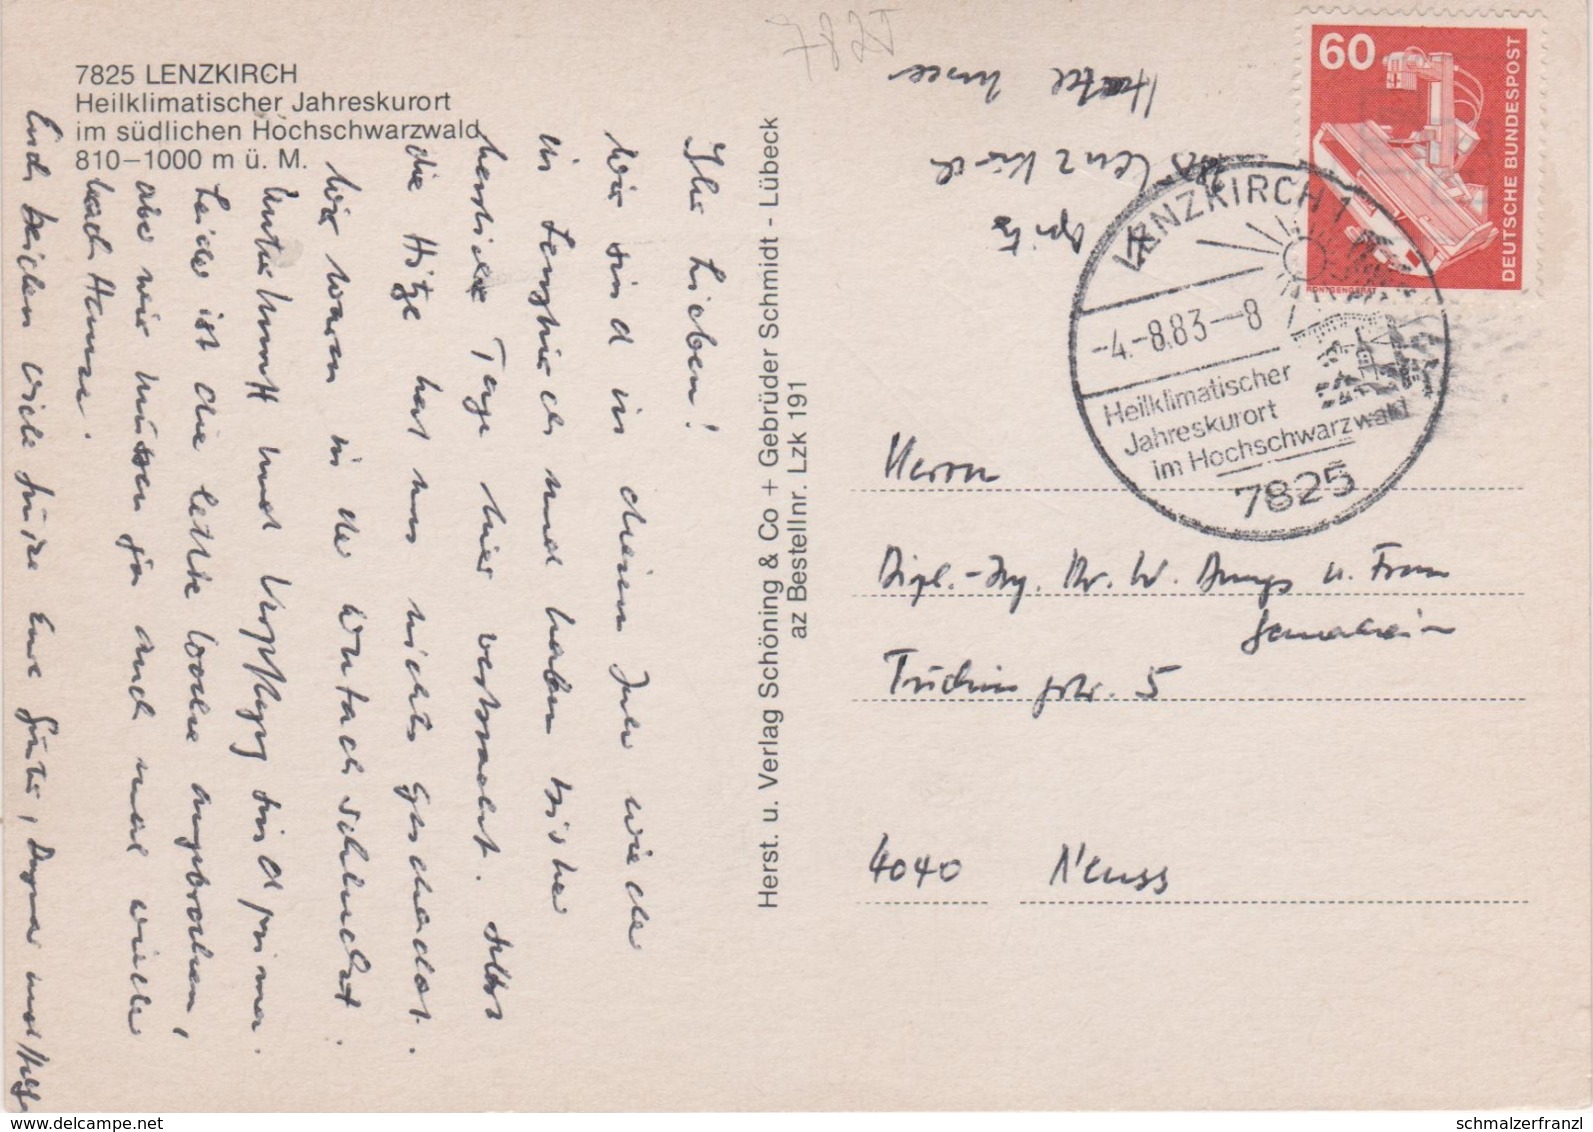 7825 LENZKIRCH
Heilklimatischer Jahreskurort
im südlichen Hochschwarzwald
810–1000 m ü. M.
Ihr Lieben!
Wir sind in diesem Jahr wieder
in Lenzkirch und haben bisher
herrliche Tage hier verbracht. Selbst
die Hitze hat uns nichts geschadet.
Wir waren in der Wutachschlucht.
Unterkunft und Verpflegung sind prima.
Leider ist die letzte Woche angebrochen,
aber wir müssen ja auch mal wieder
nach Hause.
Euch beiden viele Grüße Eure Günter, Dagmar und
Herst. u. Verlag Schöning & Co + Gebrüder Schmidt - Lübeck
az Bestellnr. Lzk 191
Lenzkirch
60
DEUTSCHE BUNDESPOST
RÖNTGENGERÄT
LENZKIRCH 1
-4.-8.83-8
Heilklimatischer
Jahreskurort
im Hochschwarzwald
7825
Herrn
Dipl.-Ing. W. u. Frau
5
4040 Neuss
www.delcampe.net
schmalzerfranzl